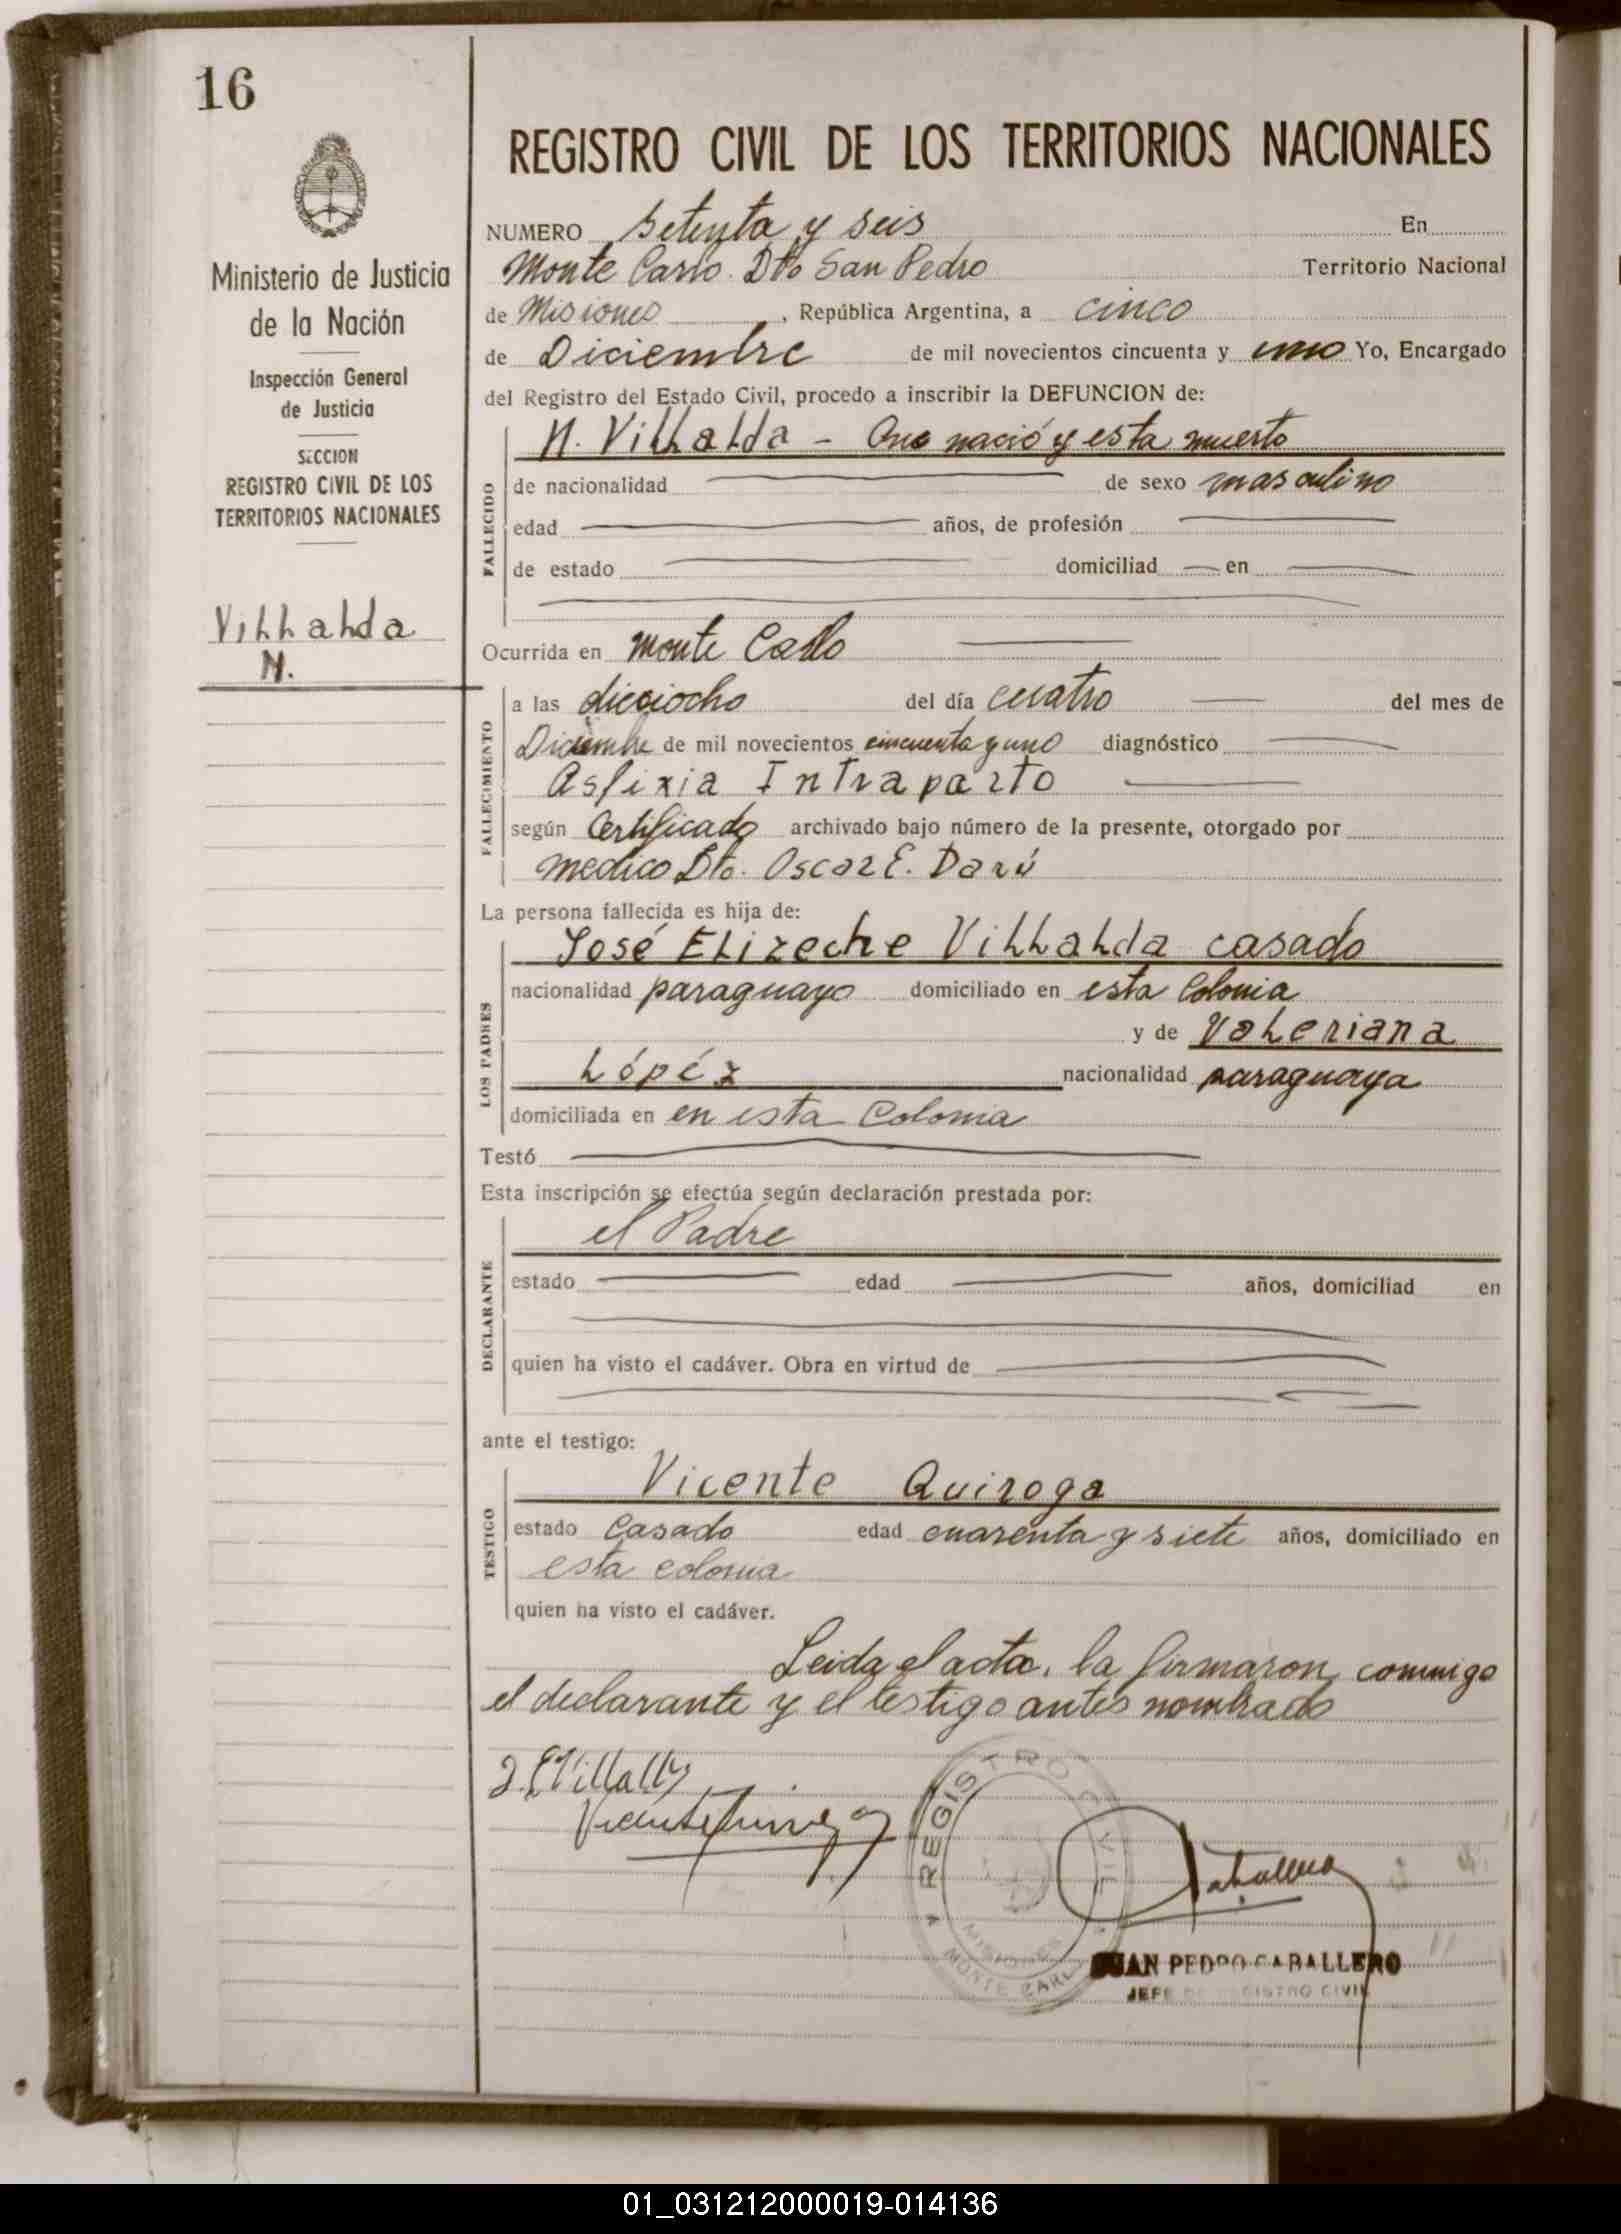 16
Ministerio de Justicia
de la Nación
Inspección General
de Justicia
SECCION
REGISTRO CIVIL DE LOS
TERRITORIOS NACIONALES
Villalda
N.
REGISTRO CIVIL DE LOS TERRITORIOS NACIONALES
NUMERO Setenta y seis En
Monte Carlo. Dto San Pedro Territorio Nacional
de Misiones, República Argentina, a cinco
de Diciembre de mil novecientos cincuenta y uno Yo, Encargado
del Registro del Estado Civil, procedo a inscribir la DEFUNCION de:
N. Villalda - Que nació y esta muerto
FALLECIDO
de nacionalidad de sexo masculino
edad años, de profesión
de estado domiciliad en
Ocurrida en Monte Carlo
FALLECIMIENTO
a las dieciocho del día cuatro del mes de
Diciembre de mil novecientos cincuenta y uno diagnóstico
Asfixia Intraparto
según Certificado archivado bajo número de la presente, otorgado por
medico Dto. Oscar E. Darú
La persona fallecida es hija de:
LOS PADRES
José Elizeche Villalda casado
nacionalidad paraguayo domiciliado en esta Colonia
y de Valeriana
López nacionalidad paraguaya
domiciliada en en esta Colonia
Testó
Esta inscripción se efectúa según declaración prestada por:
el Padre
DECLARANTE
estado edad años, domiciliad en
quien ha visto el cadáver. Obra en virtud de
ante el testigo:
Vicente Quiroga
TESTIGO
estado Casado edad cuarenta y siete años, domiciliado en
esta colonia
quien ha visto el cadáver.
Leida el acta, la firmaron conmigo
el declarante y el testigo antes nombrado
J. E. Villalba
Vicente Quiroga
REGISTRO CIVIL
MISIONES
MONTE CARLO
Caballero
JUAN PEDRO CABALLERO
JEFE DE REGISTRO CIVIL
01_031212000019-014136